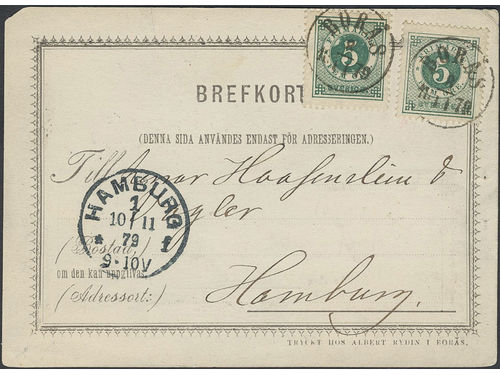 BORÅS
5
SVERIGE
BORÅS
5
BREFKORT
(DENNA SIDA ANVÄNDES ENDAST FÖR ADRESSERINGEN.)
Till Herrar Haasenstein &
Vogler
HAMBURG
1
10 11
79
9-10V
* 1
(Bostad,
om den kan uppgifvas.)
(Adressort:)
Hamburg.
TRYCKT HOS ALBERT RYDIN I BORÅS.